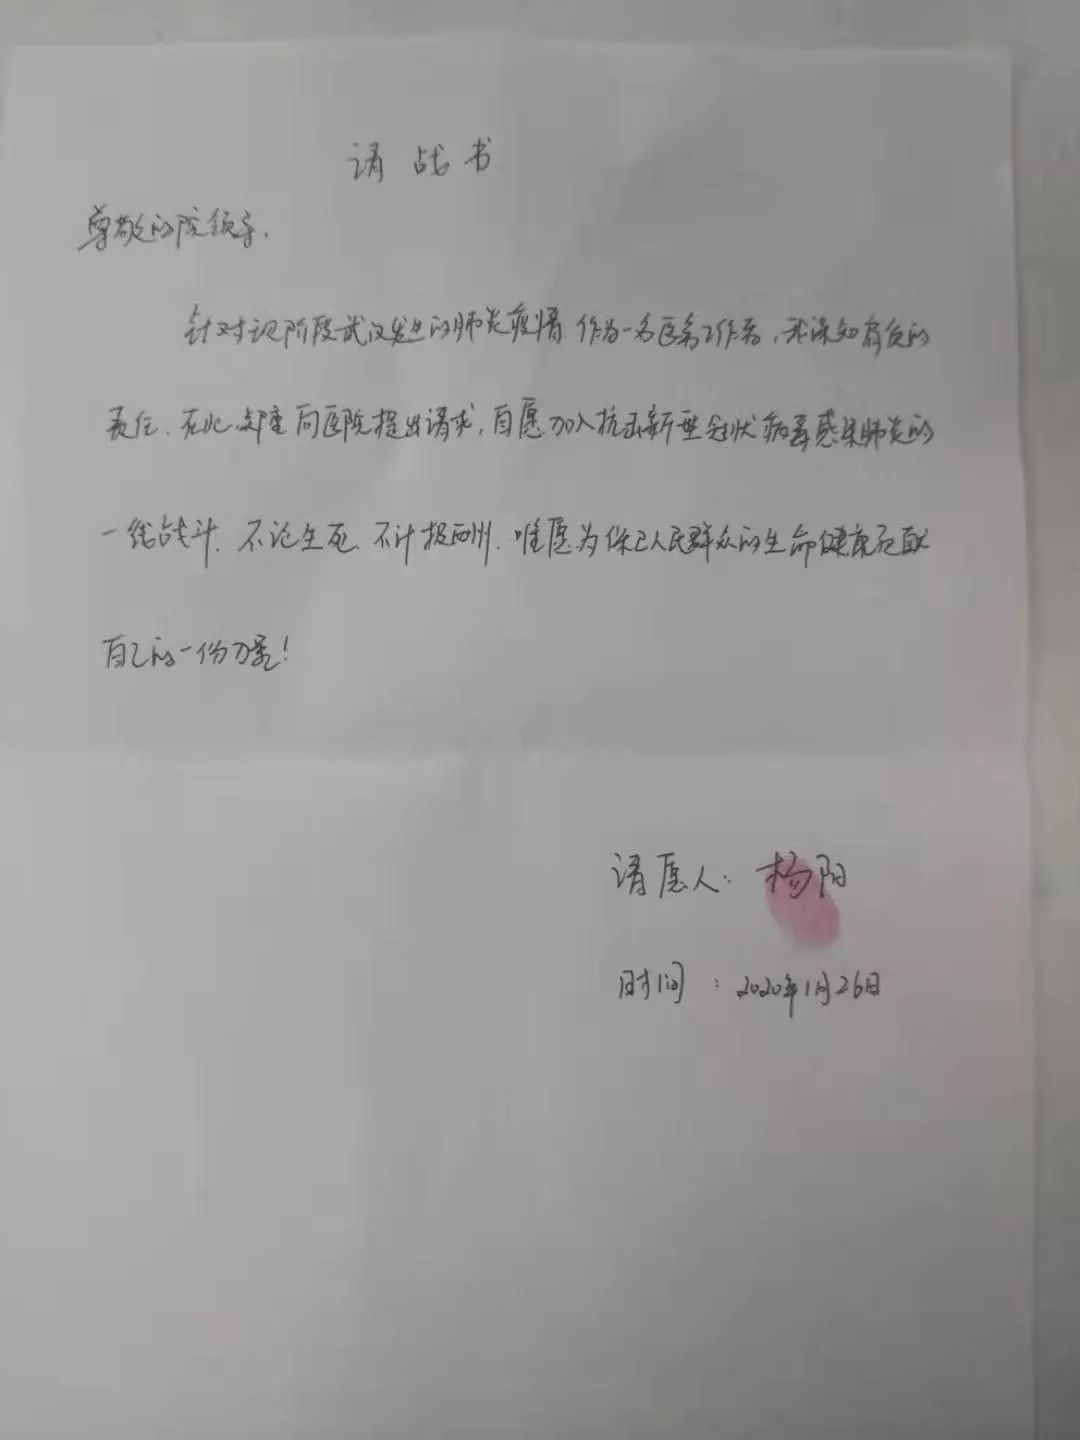 请战书
尊敬的院领导,
针对现阶段武汉发生的肺炎疫情 作为一名医务工作者,我深知肩负的
责任.在此,郑重向医院提出请求,自愿加入抗击新型冠状病毒感染肺炎的
一线战斗.不论生死 不计报酬.唯愿为保卫人民群众的生命健康贡献
自己的一份力量!
请愿人:杨阳
时间:2020年1月26日